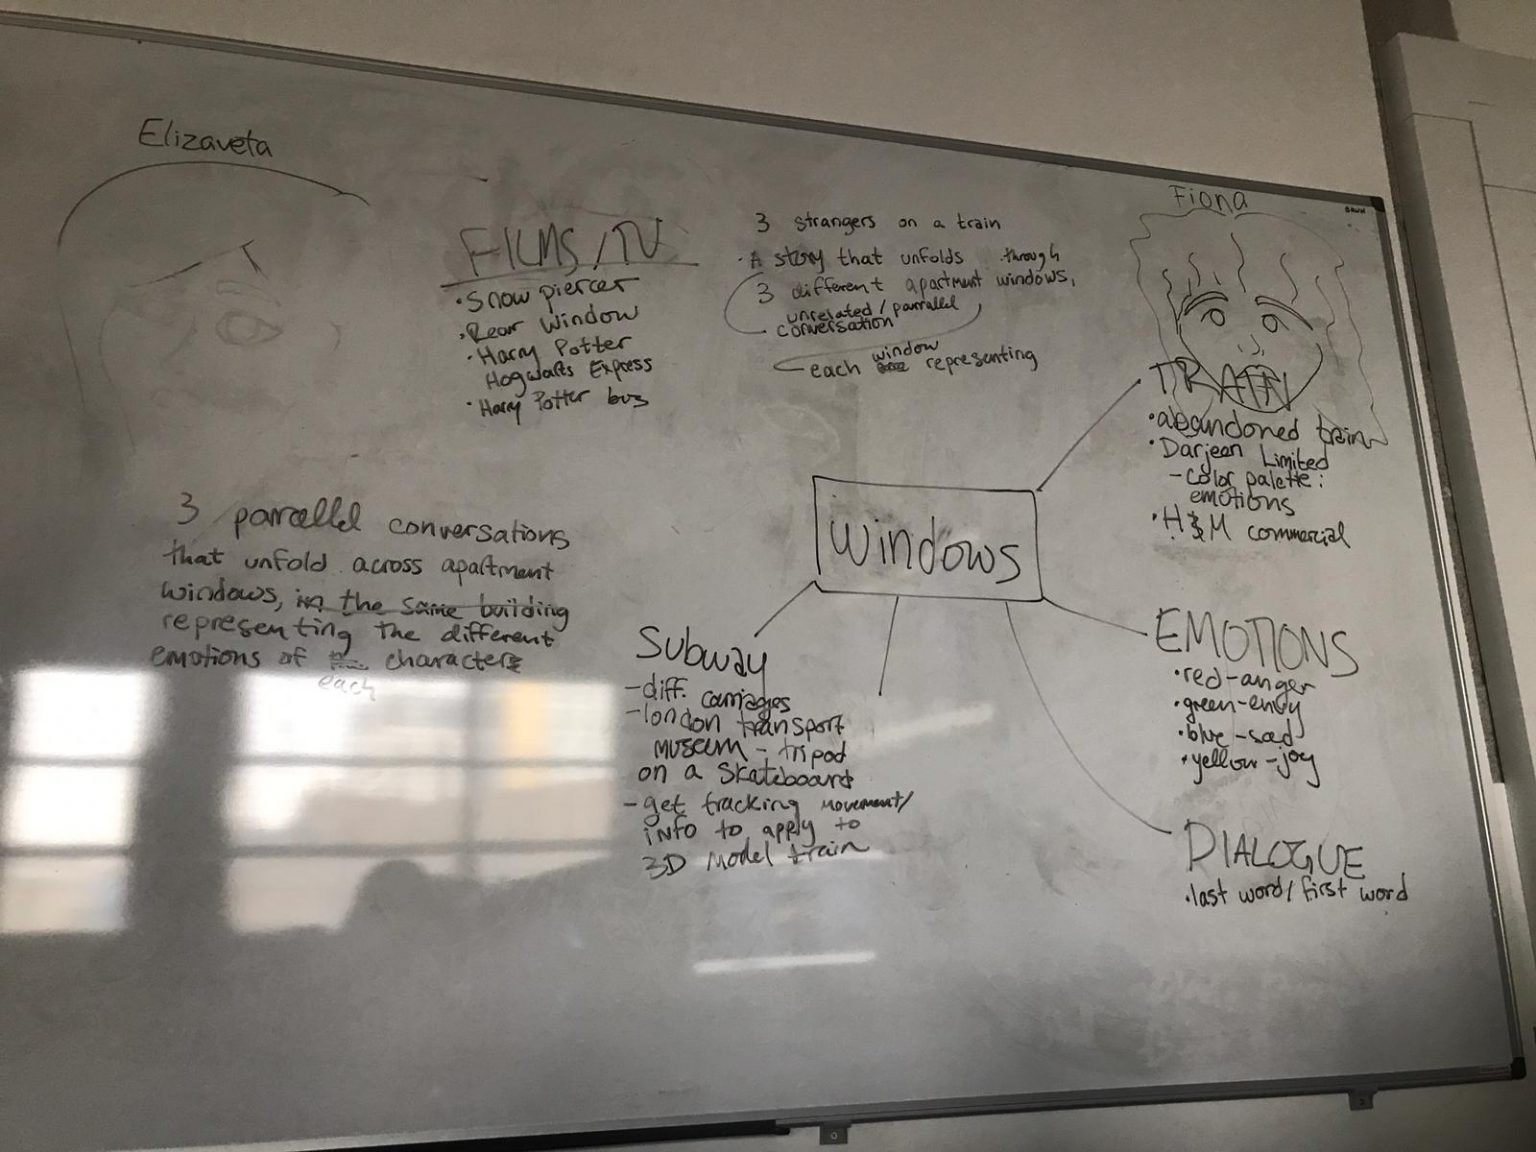 Elizaveta
FILMS/TV
• Snow piercer
• Rear Window
• Harry Potter
Hogwarts Express
• Harry Potter bus
3 strangers on a train
• A story that unfolds through
3 different apartment windows,
unrelated / parrallel
conversation
each window representing
Fiona
TRAIN
• abandoned train
• Darjeen Limited
- color palette:
emotions
• H&M commercial
3 parallel conversations
that unfold across apartment
windows, in the same building
representing the different
emotions of characters
each
windows
Subway
- diff. carriages
- london transport
museum - tripod
on a skateboard
- get tracking movement/
info to apply to
3D model train
EMOTIONS
• red-anger
• green-envy
• blue-sad
• yellow-joy
DIALOGUE
• last word/first word